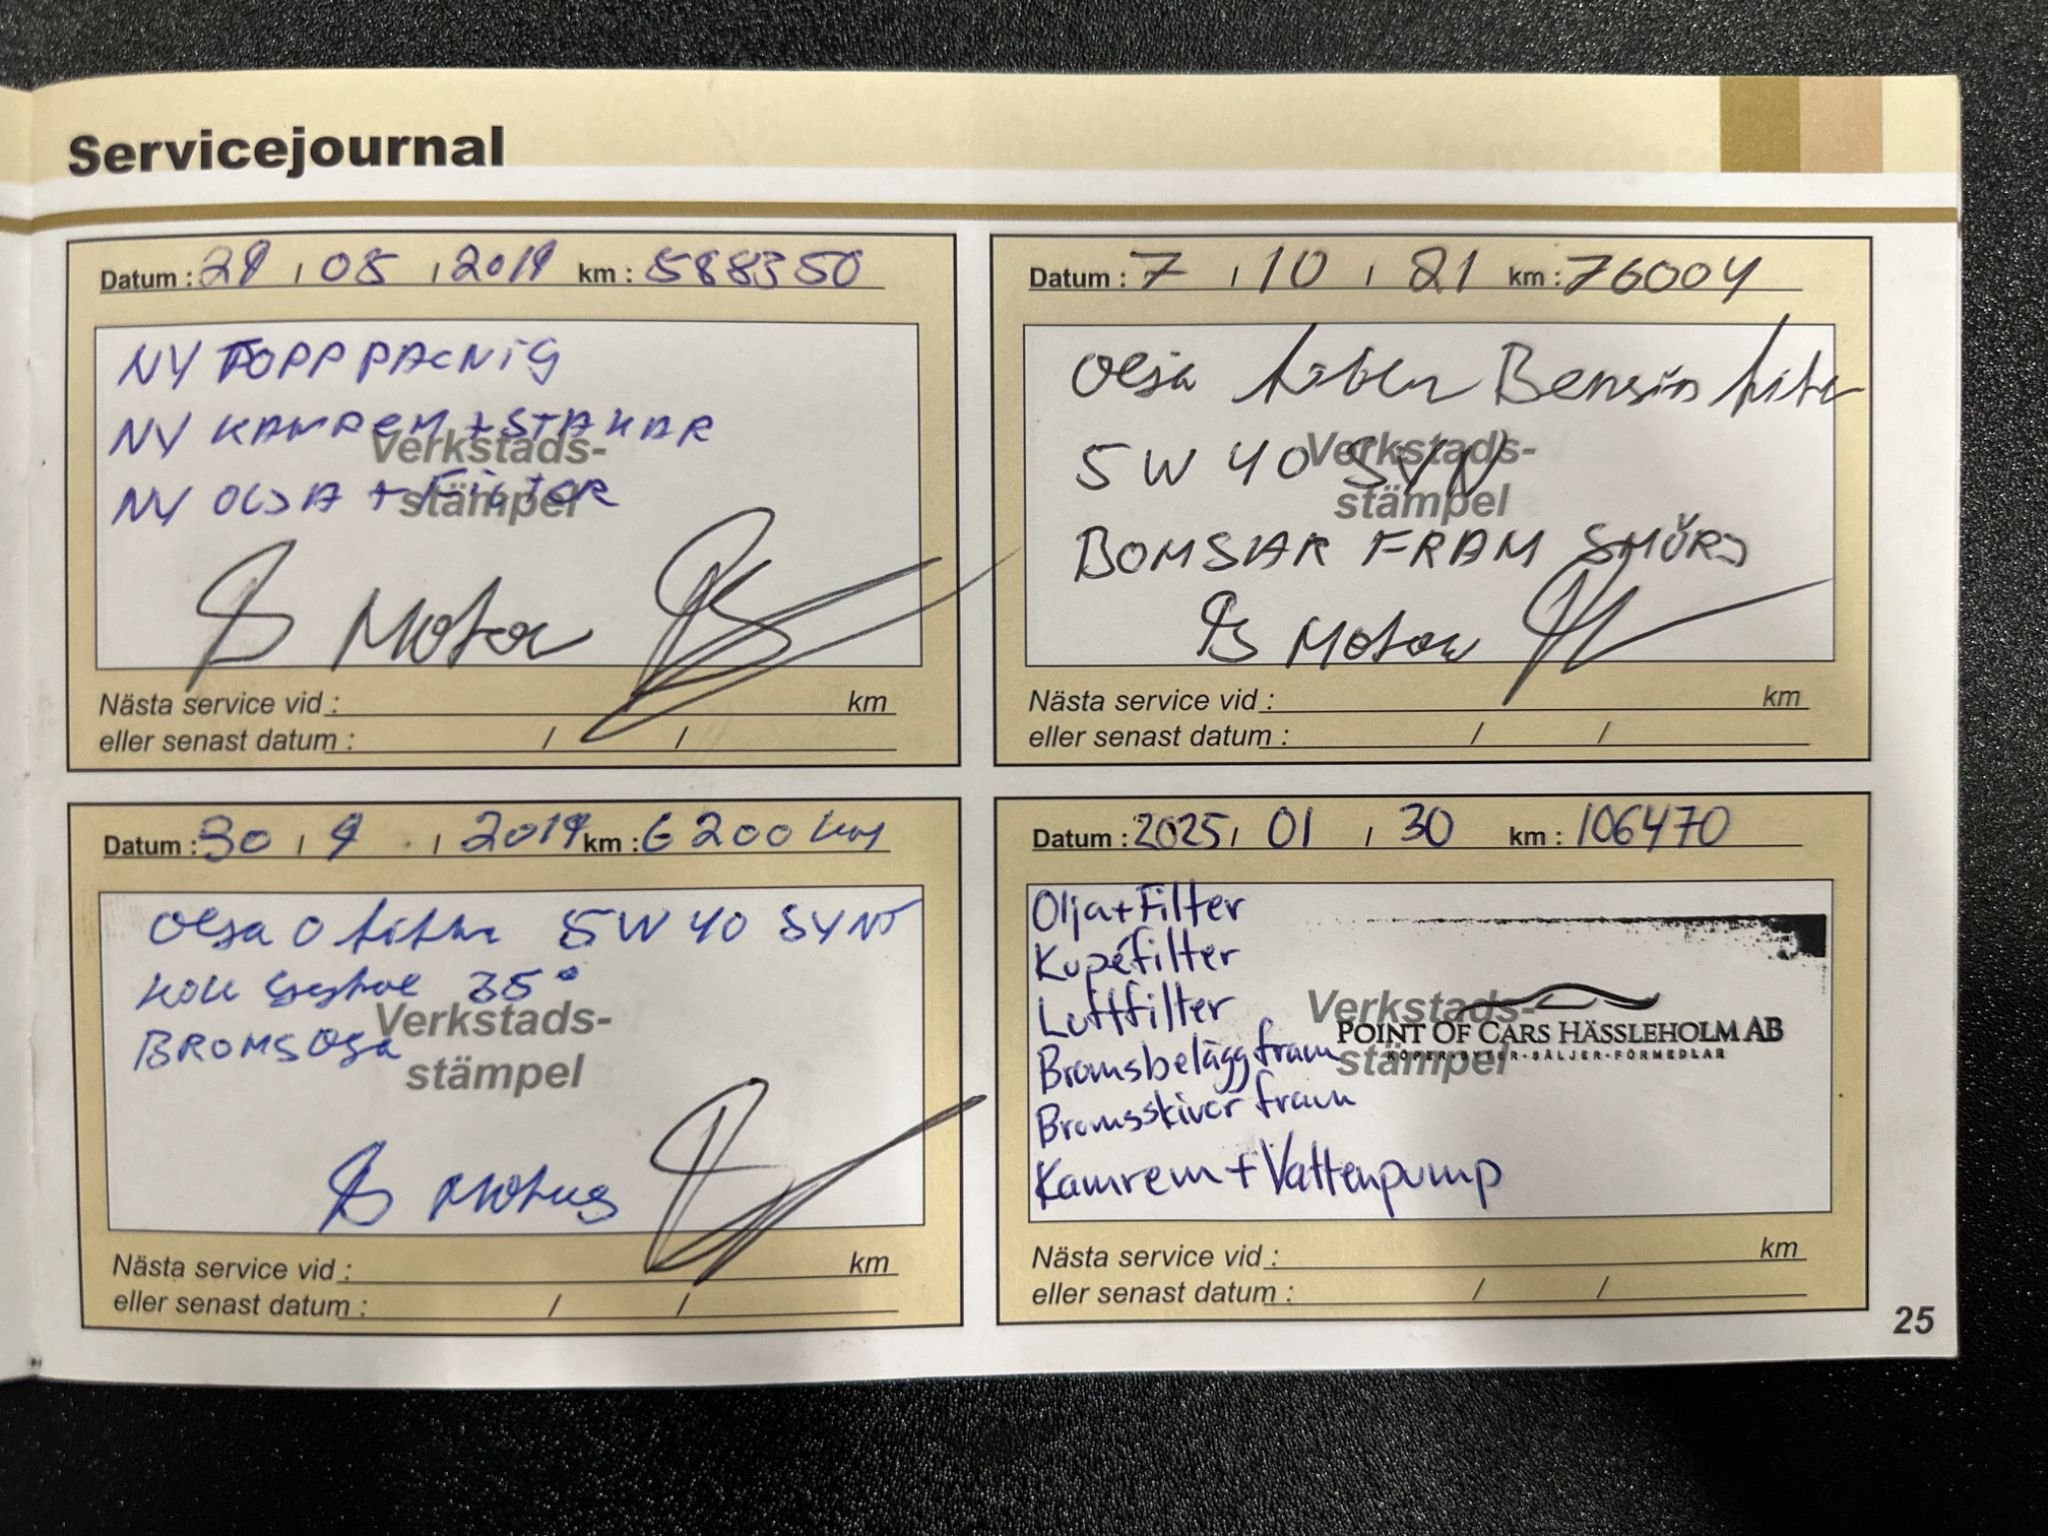 Servicejournal
Datum : 29 / 05 / 2019 km : 588350
NY TOPPPACNIG
NY KAMREM + STAKAR
NY OLJA + FILTER
Verkstads-
stämpel
B Motor
Nästa service vid : km
eller senast datum : / /
Datum : 7 / 10 / 21 km : 76004
Olja Bensin
5W 40 SYN
Verkstads-
stämpel
BOMSTAR FRAM SMÖRJ
B Motor
Nästa service vid : km
eller senast datum : / /
Datum : 30 / 9 / 2019 km : 6200 km
Olja O filter 5W 40 SYNT
35°
BROMSOlja
Verkstads-
stämpel
B
Nästa service vid : km
eller senast datum : / /
Datum : 2025 / 01 / 30 km : 106470
Olja+Filter
Kupéfilter
Luftfilter
Bromsbelägg fram
Bromsskivor fram
Kamrem + Vattenpump
Verkstads-
stämpel
POINT OF CARS HÄSSLEHOLM AB
KÖPER·BYTER·SÄLJER·FÖRMEDLAR
Nästa service vid : km
eller senast datum : / /
25